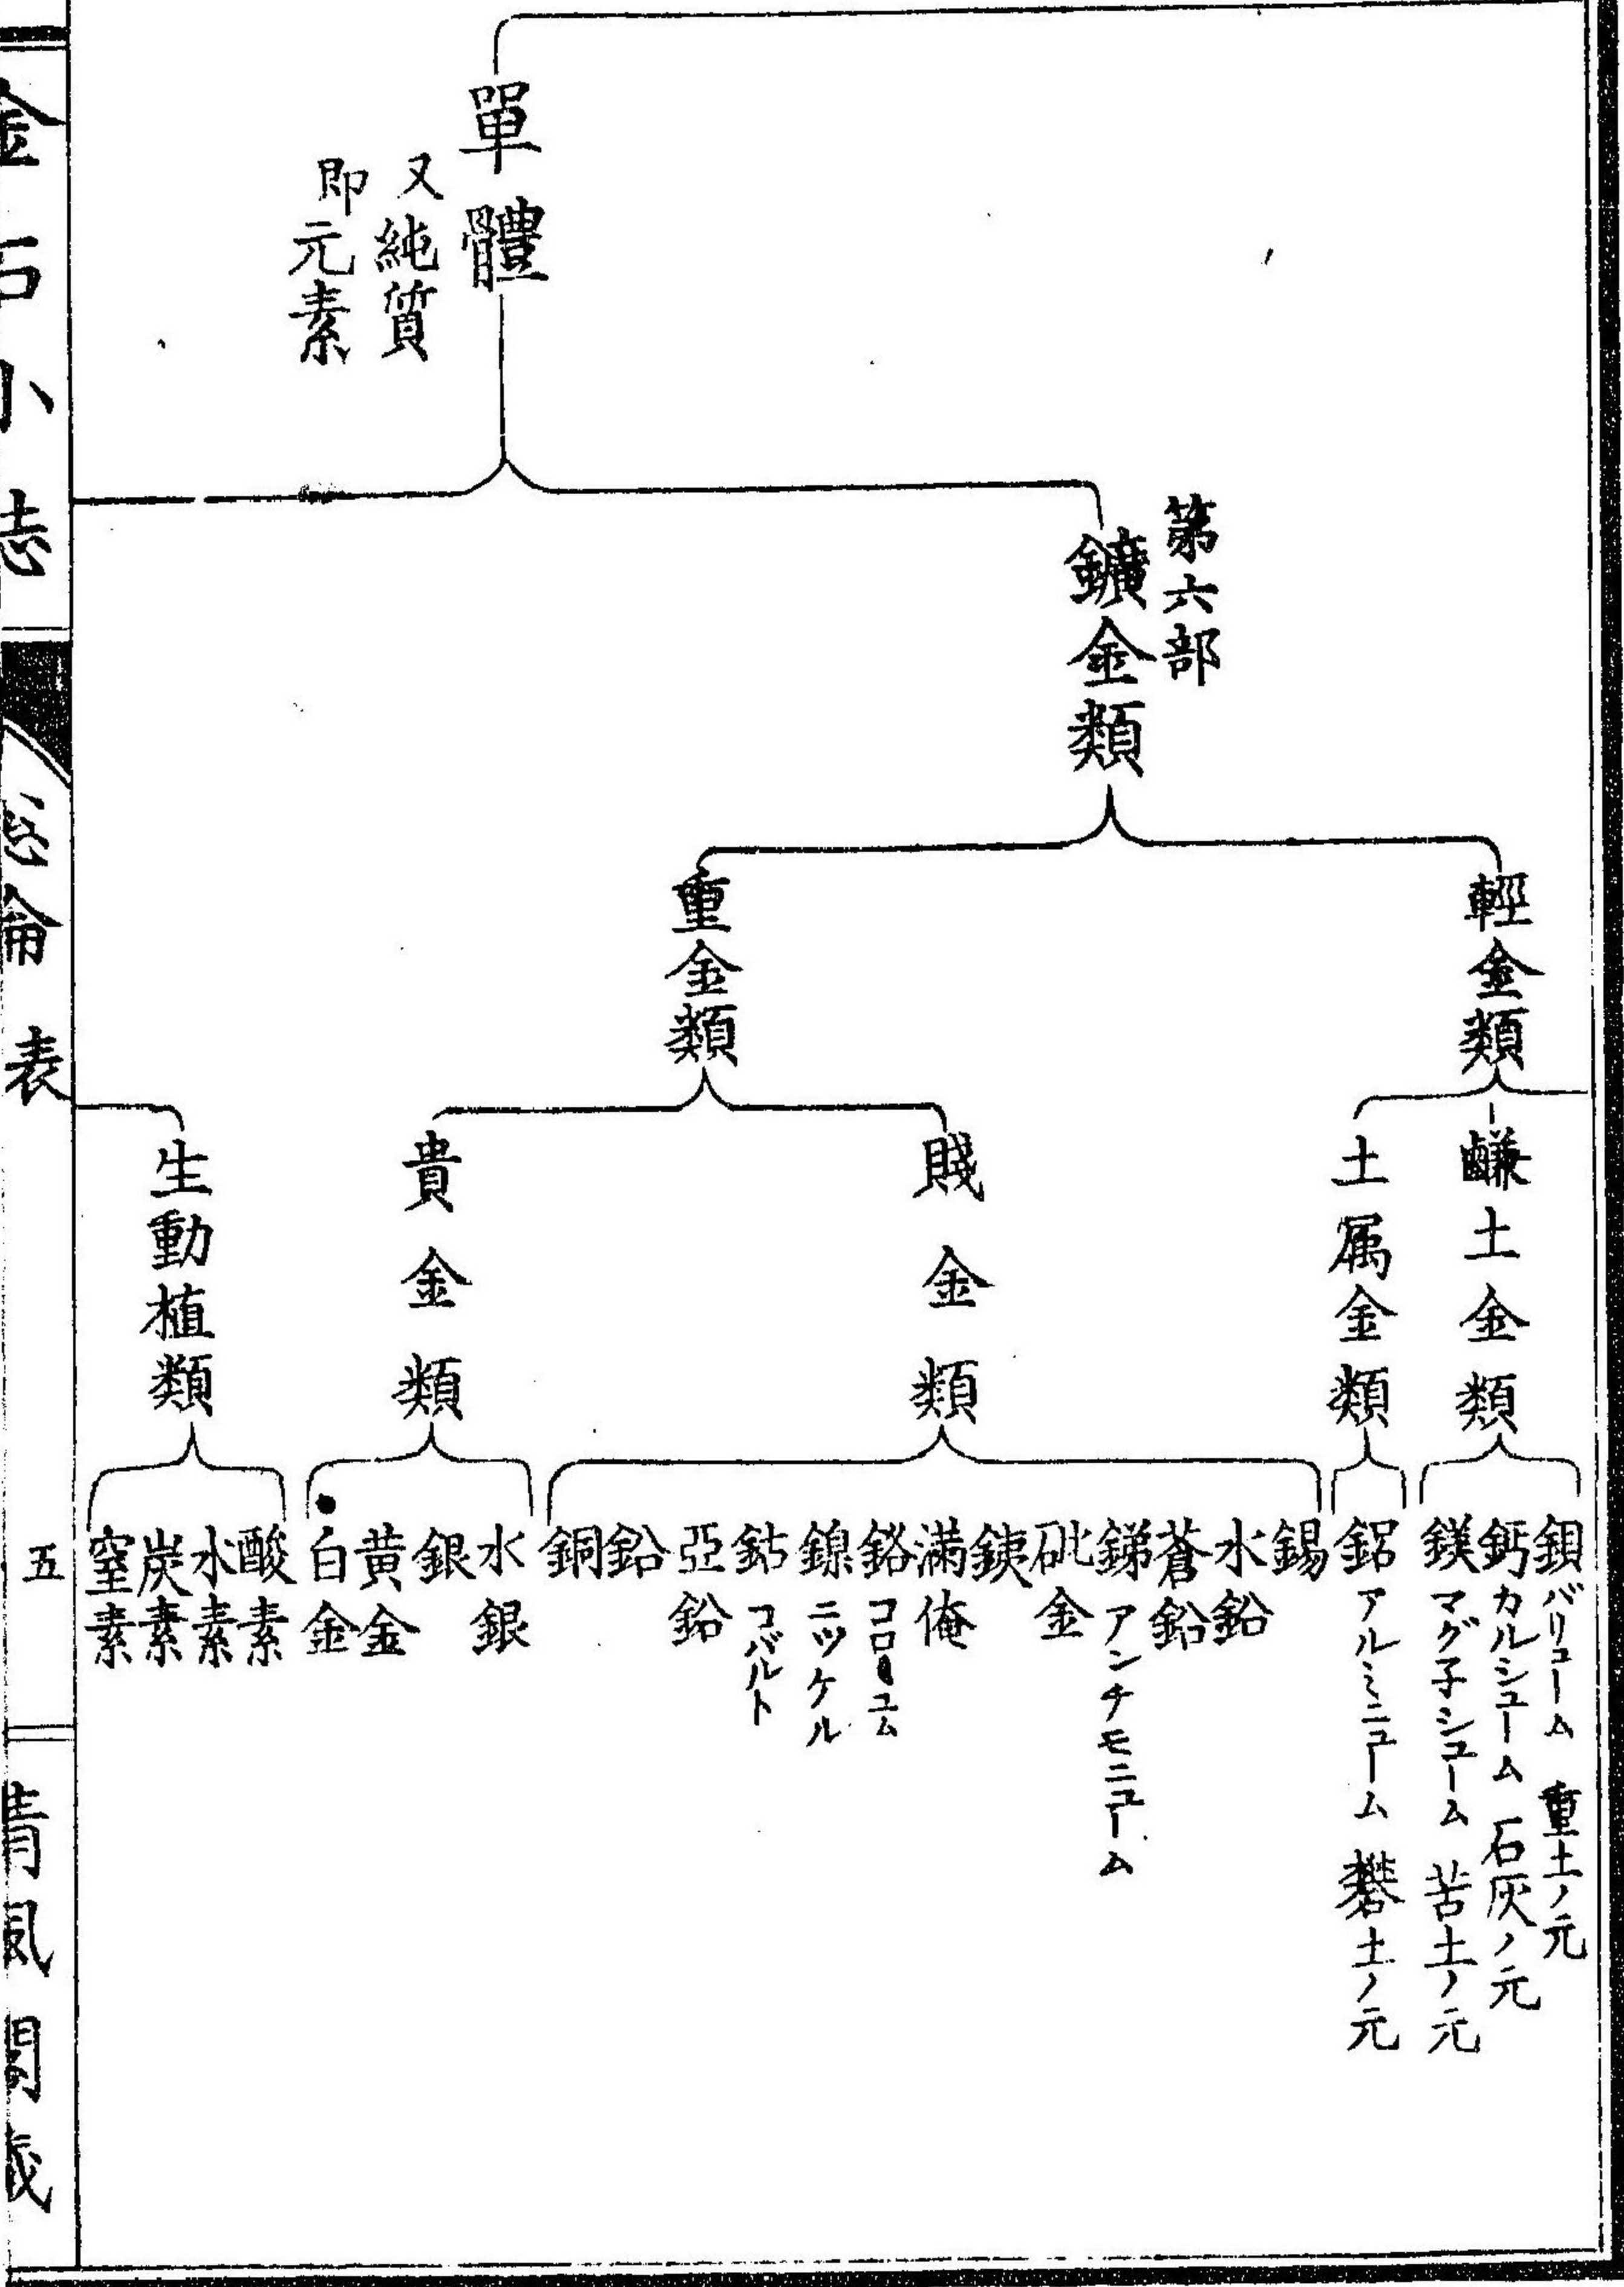 單體
又純質
即元素
第六部
鑛金類
輕金類
鹻土金類
鋇 バリューム 重土ノ元
鈣 カルシューム 石灰ノ元
鎂 マグ子シューム 苦土ノ元
土属金類
鋁 アルミニューム 礬土ノ元
重金類
賤金類
錫
水鉛
蒼鉛
銻 アンチモニューム
砒金
銕
満俺
鉻 コロユム
鎳 ニツケル
鈷 コバルト
亞鉛
鉛
銅
貴金類
水銀
銀
黄金
白金
生動植類
酸素
水素
炭素
窒素
金石小志
表
五